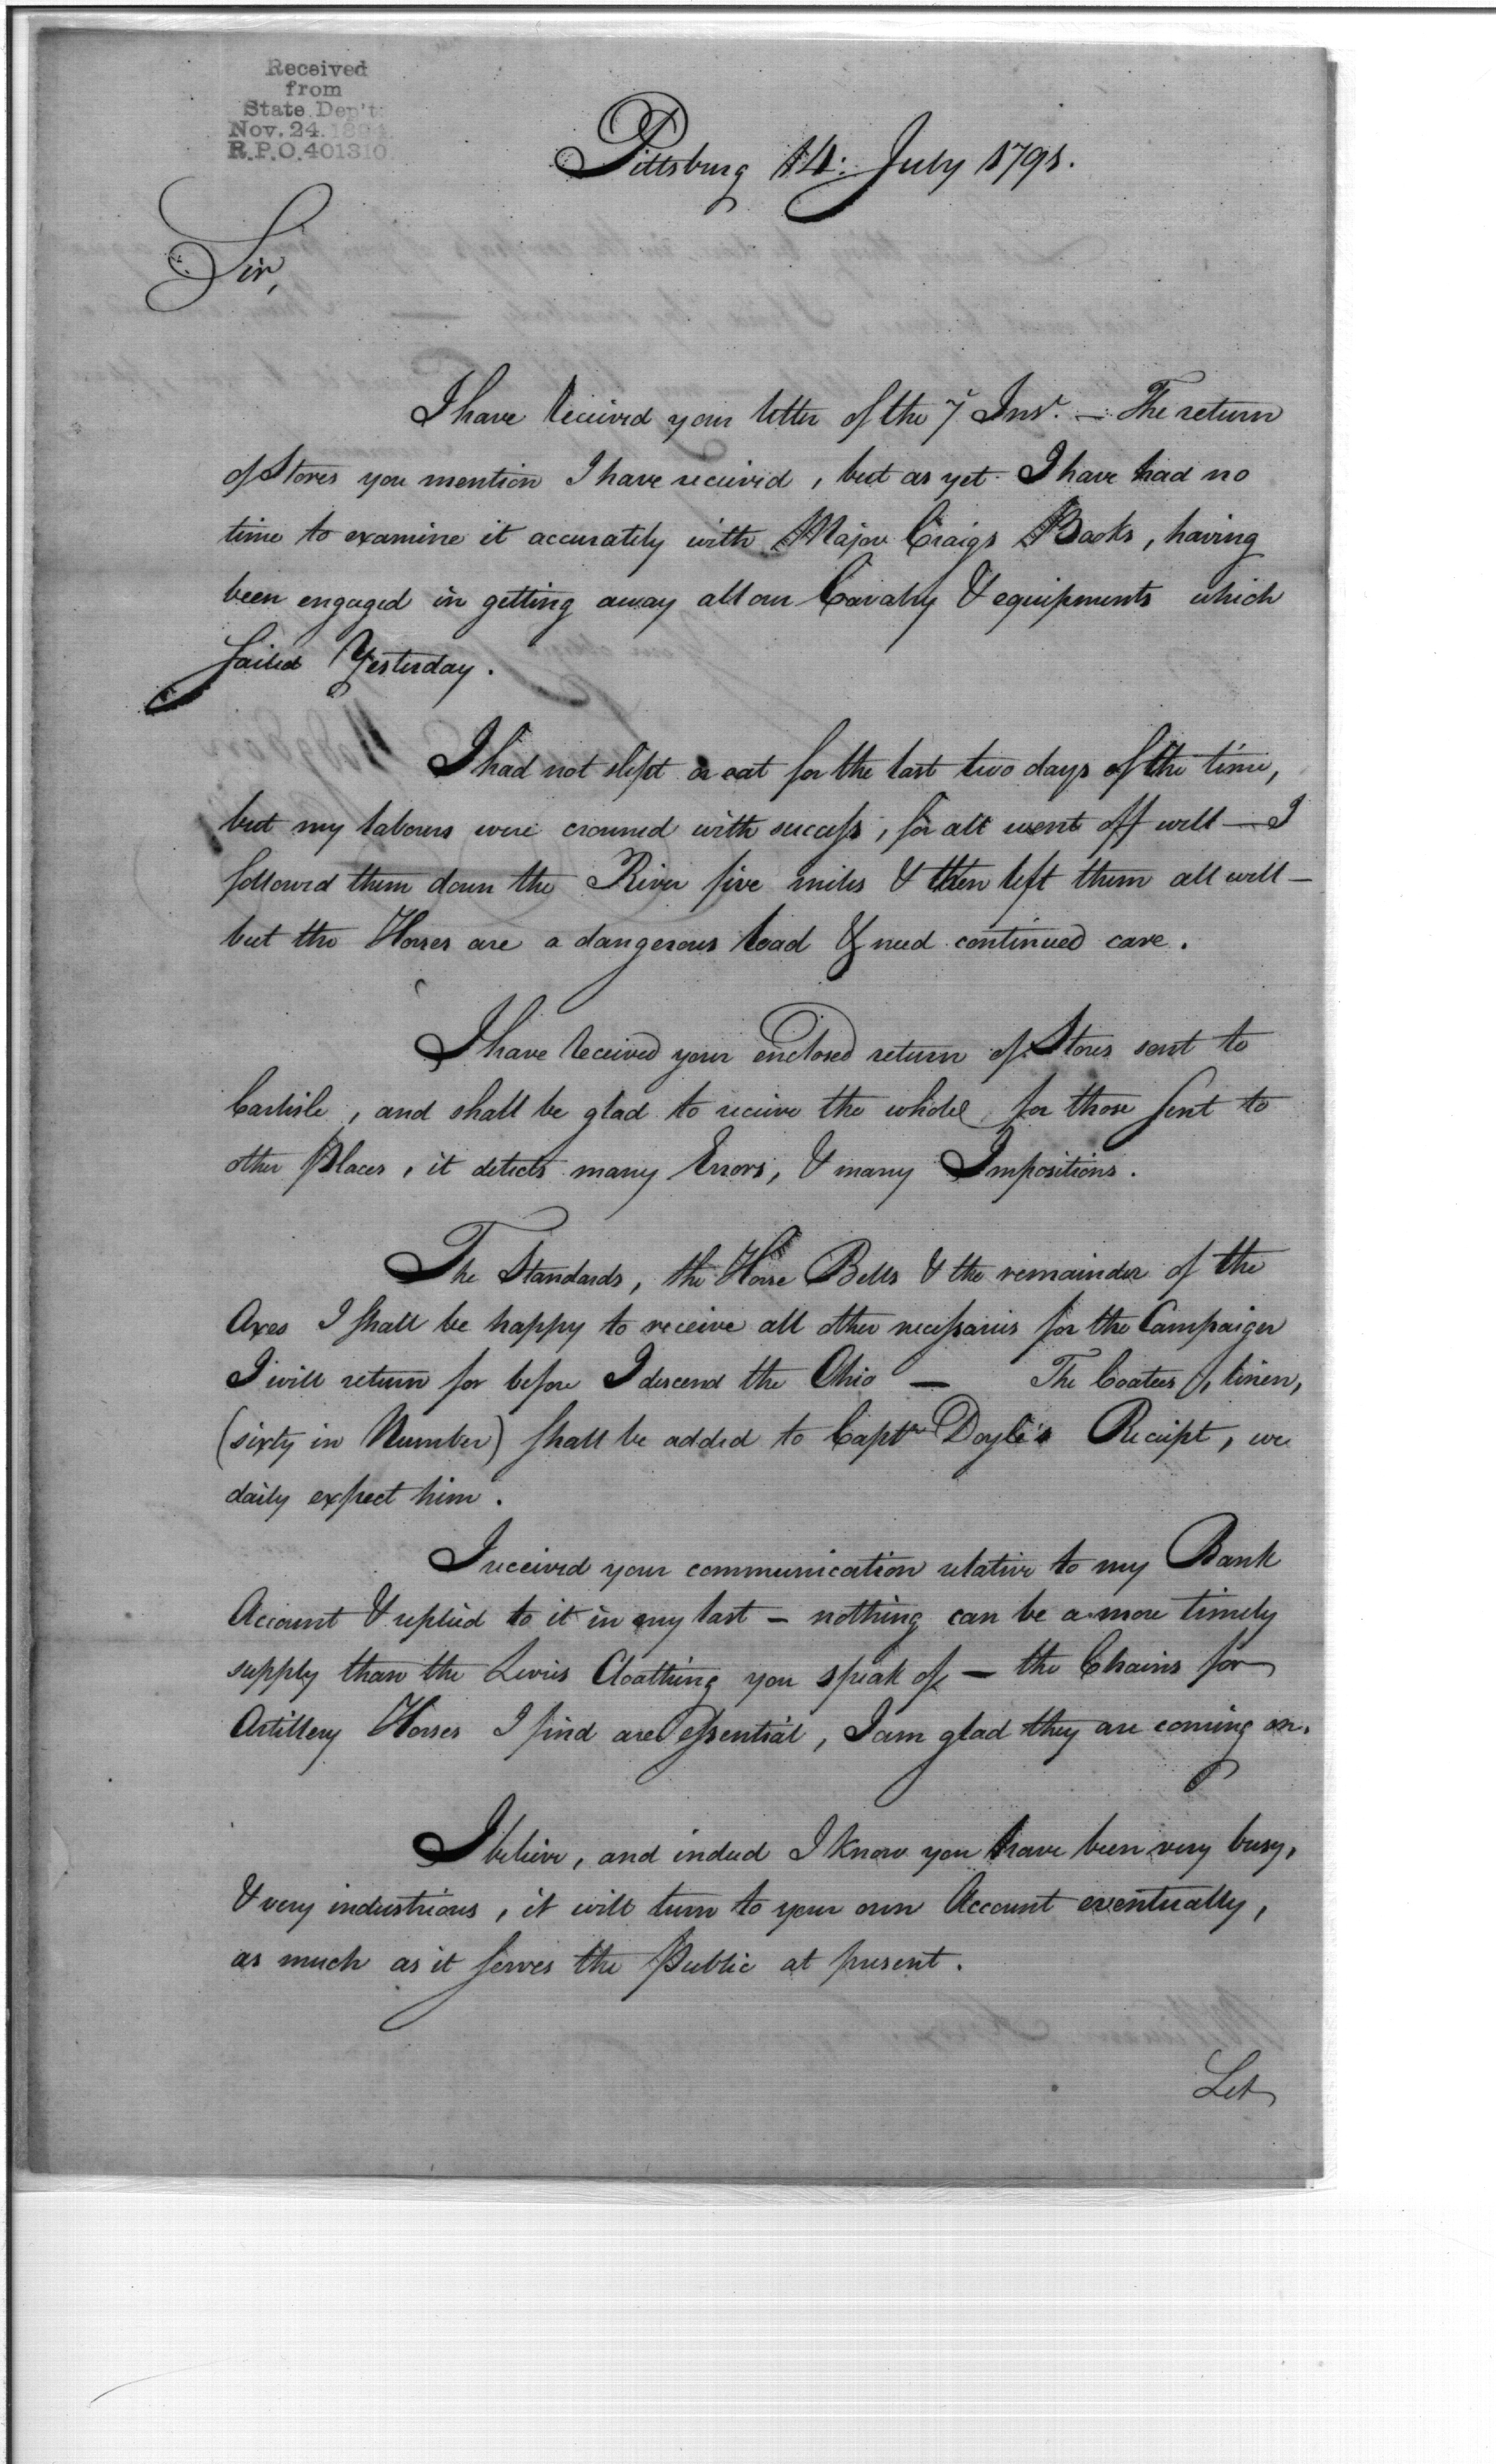 Received
from
State Dep't:
Nov. 24. 1894.
R.P.O. 401310.
Pittsburg 14: July 1791.
Sir,
I have received your letter of the 7 Inst. — The return
of Stores you mention I have received, but as yet I have had no
time to examine it accurately with Major Craigs Books, having
been engaged in getting away all our Cavalry & equipments which
sailed Yesterday.
I had not slept or eat for the last two days of the time,
but my labours were crowned with success, for all went off well — I
followed them down the River five miles & then left them all well —
but the Horses are a dangerous load & need continued care.
I have received your enclosed return of Stores sent to
Carlisle, and shall be glad to receive the whole for those sent to
other Places, it detects many Errors, & many Impositions.
The Standards, the Horse Bells & the remainder of the
Axes I shall be happy to receive all other necessaries for the Campaign
I will return for before I descend the Ohio — The Coatees of linen,
(sixty in Number) shall be added to Captn Doyle's Receipt, we
daily expect him.
I received your communication relative to my Bank
Account & replied to it in my last — nothing can be a more timely
supply than the Levies Cloathing you speak of — the Chains for
Artillery Horses I find are essential, I am glad they are coming on.
I believe, and indeed I know you have been very busy,
& very industrious, it will turn to your own Account eventually,
as much as it serves the Public at present.
Let